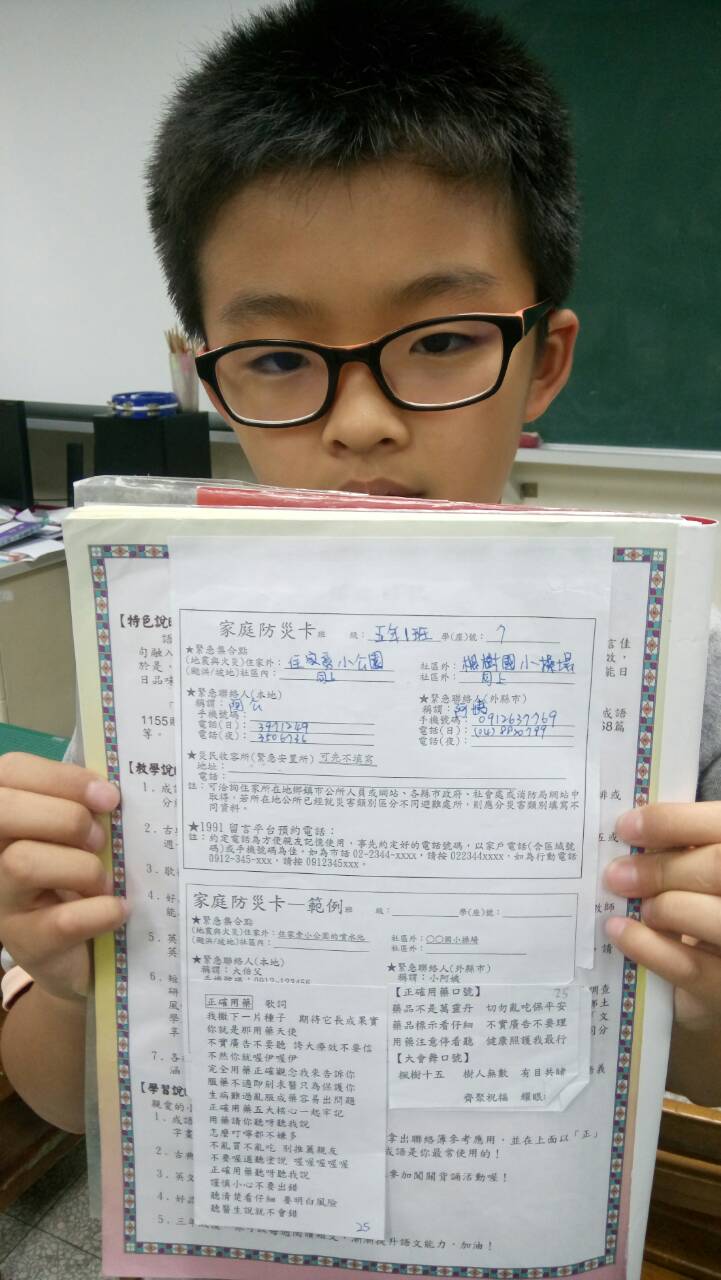 【特色說
語
句融入
於是，
日品味
1155
等。
68篇
【教學說
家庭防災卡 班 級：五年1班 學(座)號：7
★緊急集合點
(地震與火災)住家外：住家旁小公園 社區外：楓樹國小操場
(颱洪/坡地)社區內：同上 社區外：同上
★緊急聯絡人(本地) ★緊急聯絡人(外縣市)
稱謂： 稱謂：阿媽
手機號碼： 手機號碼：0912637769
電話(日)： 電話(日)：
電話(夜)： 電話(夜)：
★災民收容所(緊急安置所) 可先不填寫
地址：
電話：
註：可洽詢住家所在地鄉鎮市公所人員或網站、各縣市政府、社會處或消防局網站中
取得，若所在地公所已經就災害類別區分不同避難處所，則應分災害類別填寫不
同資料。
★1991 留言平台預約電話：
註：約定電話為方便親友記憶使用，事先約定好的電話號碼，以家戶電話(含區域號
碼)或手機號碼為佳，如為市話 02-2344-xxxx，請按 022344xxxx，如為行動電話
0912-345-xxx，請按 0912345xxx。
家庭防災卡—範例 班 級： 學(座)號：
★緊急集合點
(地震與火災)住家外：住家旁小公園的噴水池 社區外：○○國小操場
(颱洪/坡地)社區內： 社區外：
★緊急聯絡人(本地) ★緊急聯絡人(外縣市)
稱謂：大伯父 稱謂：小阿姨
手機號碼：0912-123456
正確用藥 歌詞
我撒下一片種子 期待它長成果實
你就是那用藥天使
不實廣告不要聽 誇大療效不要信
不然你就喔伊喔伊
完全用藥正確觀念我來告訴你
服藥不適即刻求醫只為保護你
生病難過亂服成藥容易出問題
正確用藥五大核心一起牢記
用藥請你聽呀聽我說
怎麼叮嚀都不嫌多
不亂買不亂吃 別推薦親友
不要喔道聽塗說 喔喔喔喔喔
正確用藥聽呀聽我說
謹慎小心不要出錯
聽清楚看仔細 要明白風險
聽醫生說就不會錯
25
【正確用藥口號】 25
藥品不是萬靈丹 切勿亂吃保平安
藥品標示看仔細 不實廣告不要理
用藥注意停看聽 健康照護我最行
【大會舞口號】
楓樹十五 樹人無數 有目共睹
齊聚祝福 耀眼
【學習說
親愛的小
拿出聯絡簿參考應用，並在上面以「正」
成語是你最常使用的！
2．古典
參加闖關背誦活動喔！
3．英文
4．好品
提升語文能力，加油！